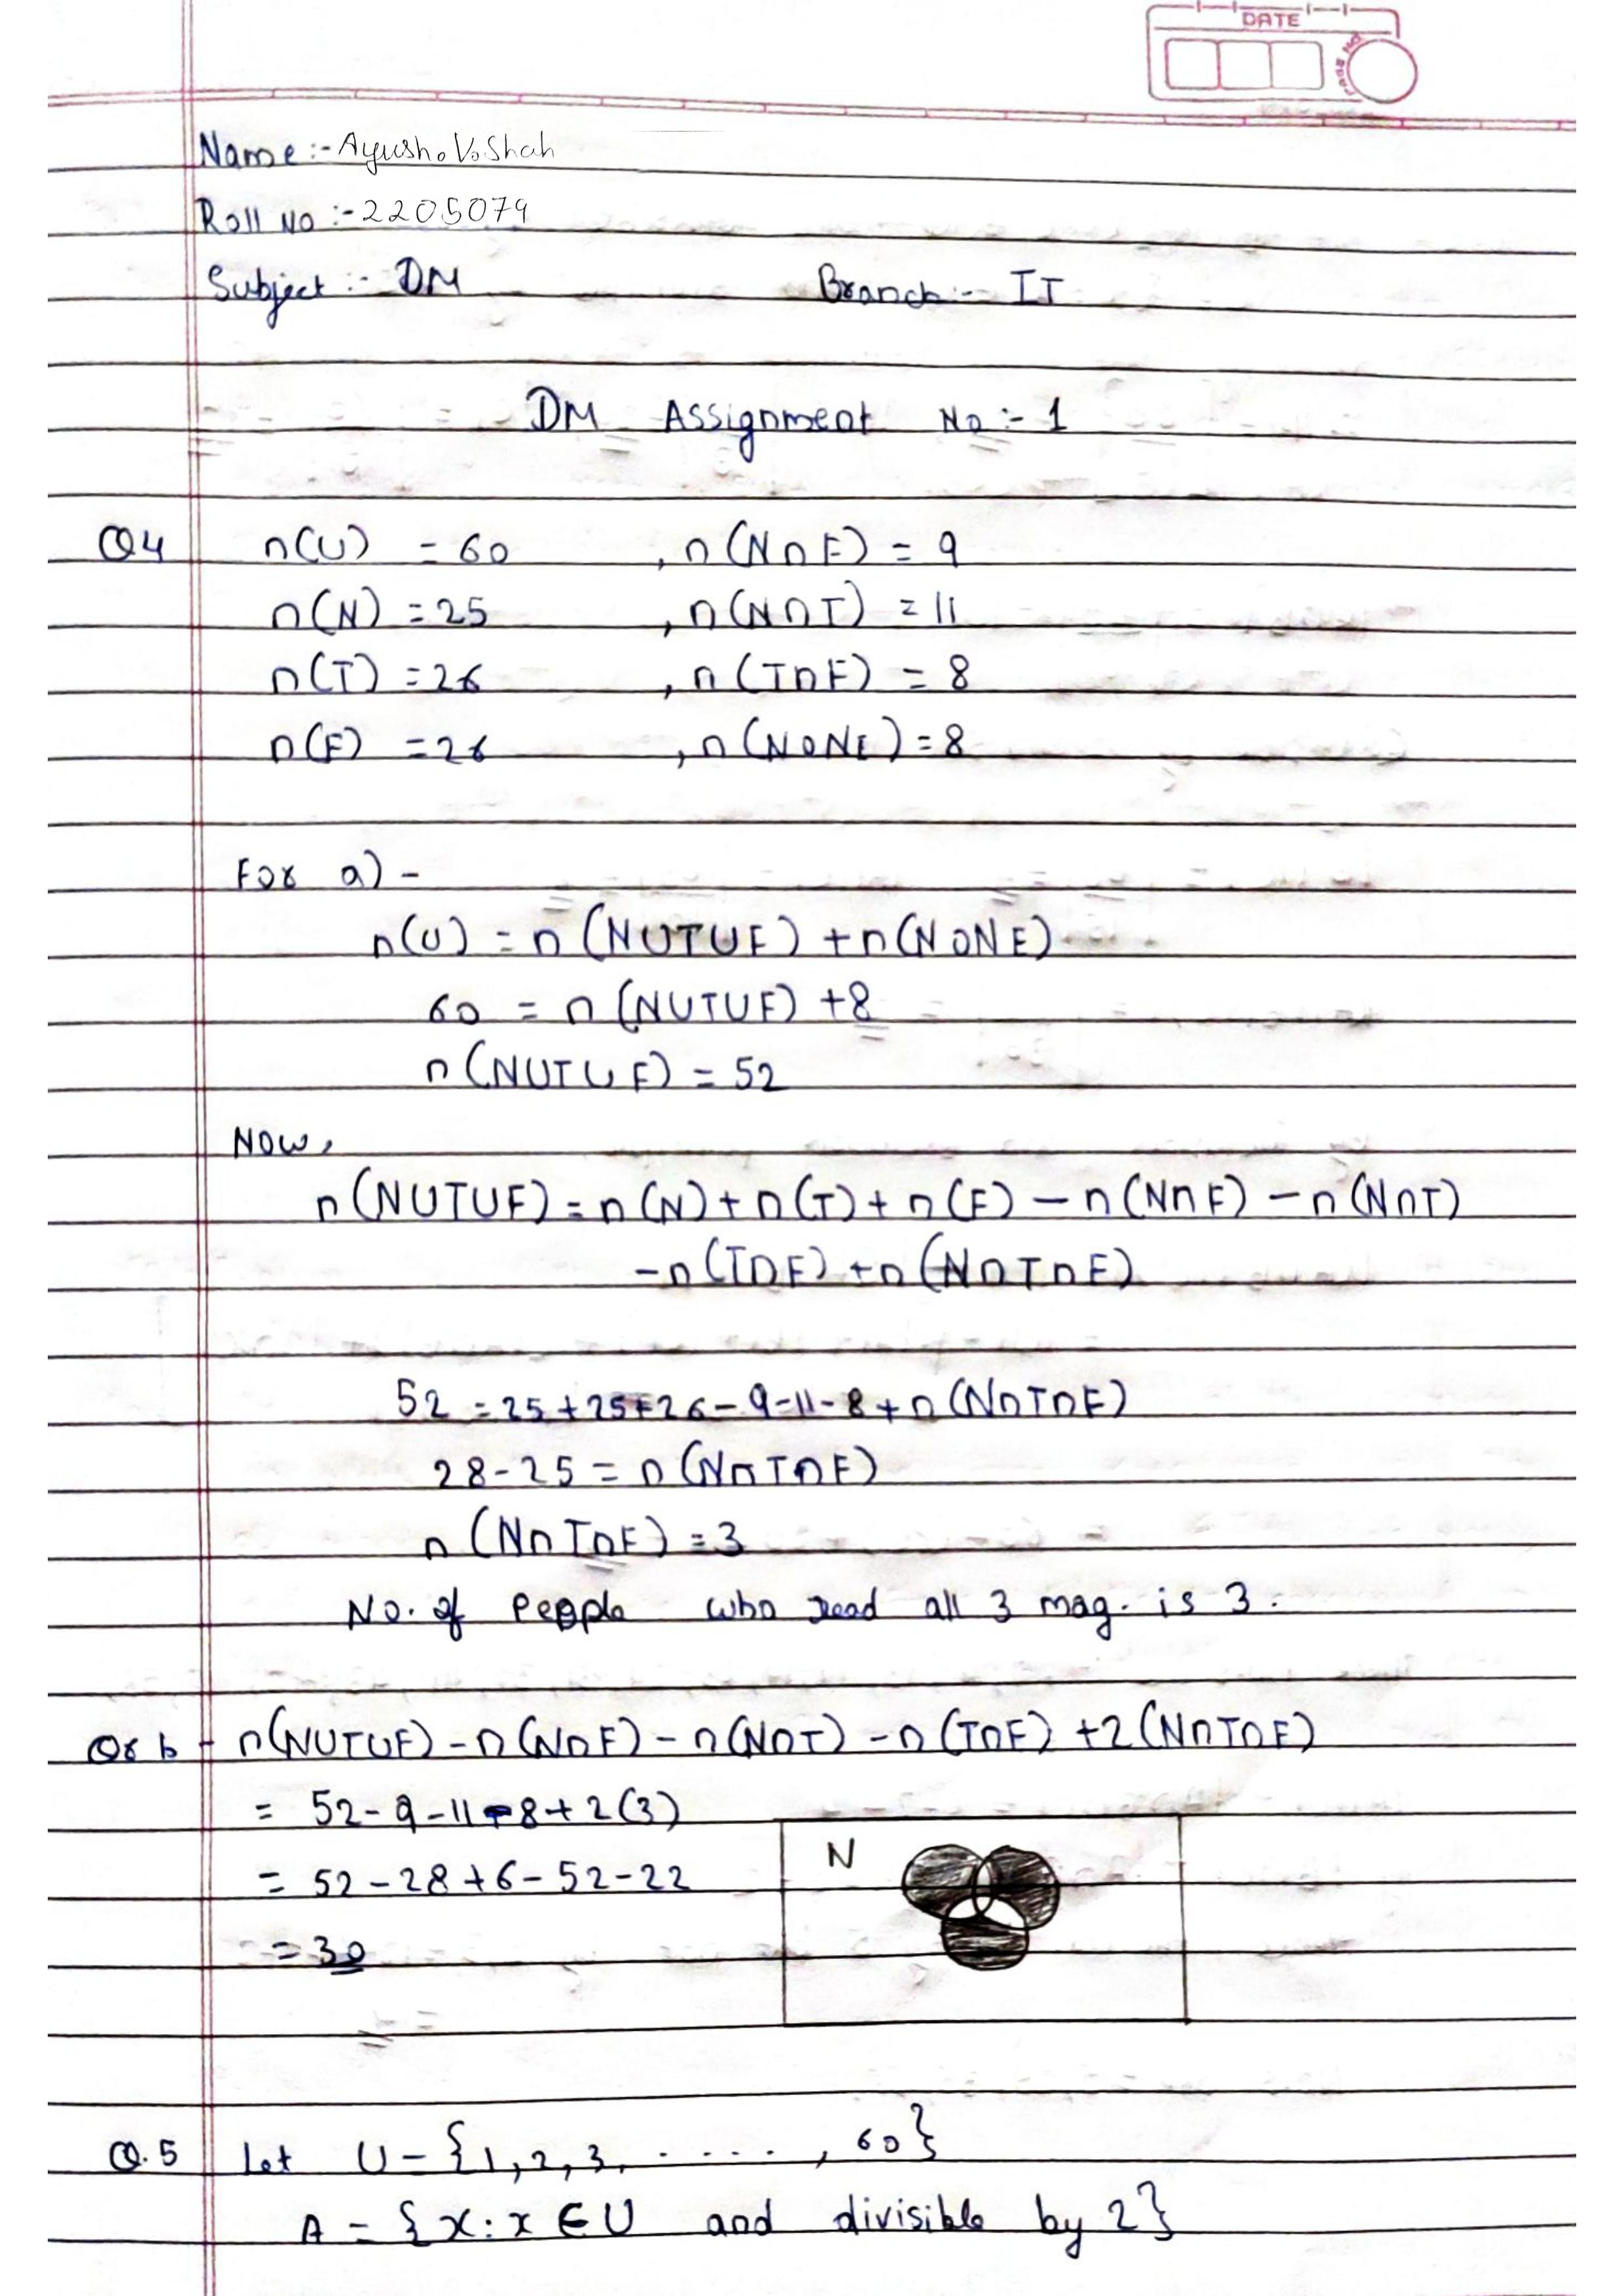 DATE
Name :- Ayush. V. Shah
Roll No :- 2205079
Subject :- DM Branch :- IT
DM Assignment No :- 1
Q4 n(U) = 60 , n(N∩F) = 9
n(N) = 25 , n(N∩T) = 11
n(T) = 26 , n(T∩F) = 8
n(F) = 26 , n(NONE) = 8
For a) -
n(U) = n(NUTUF) + n(NONE)
60 = n(NUTUF) + 8
n(NUTUF) = 52
Now,
n(NUTUF) = n(N) + n(T) + n(F) - n(N∩F) - n(N∩T)
- n(T∩F) + n(N∩T∩F)
52 = 25 + 25 + 26 - 9 - 11 - 8 + n(N∩T∩F)
28 - 25 = n(N∩T∩F)
n(N∩T∩F) = 3
No. of People who read all 3 mag. is 3.
Or b - n(NUTUF) - n(N∩F) - n(N∩T) - n(T∩F) + 2(N∩T∩F)
= 52 - 9 - 11 - 8 + 2(3)
= 52 - 28 + 6 - 52 - 22
N
= 30
Q.5 Let U - {1, 2, 3, . . . . . , 60}
A = {x : x ∈ U and divisible by 2}